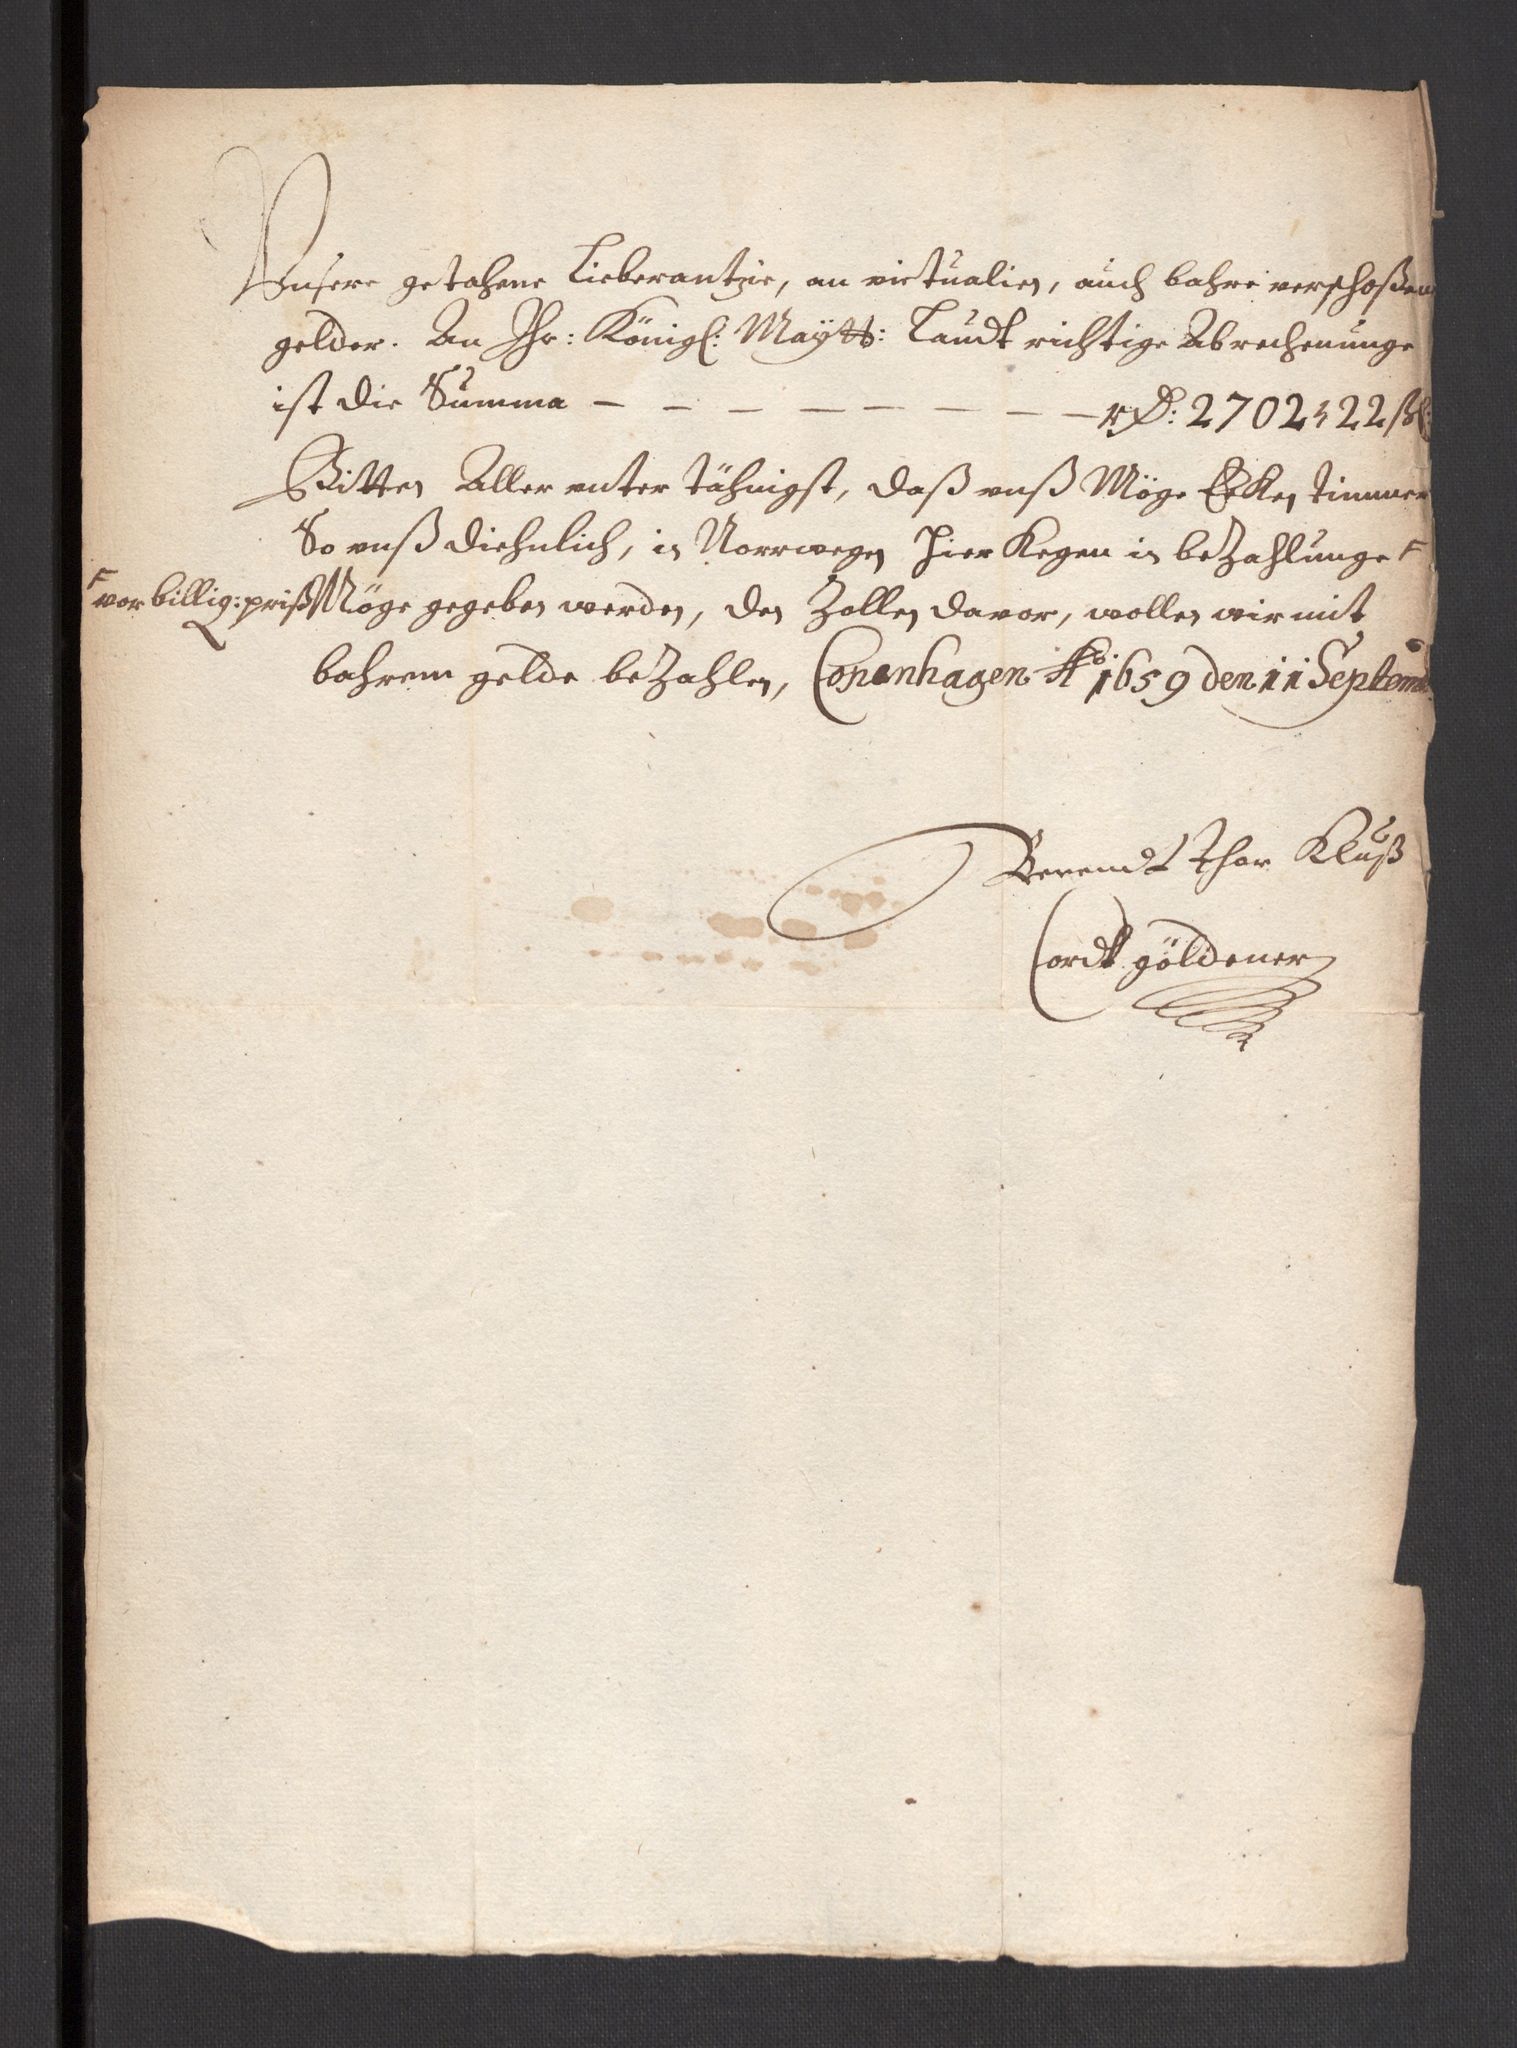 Vnsere getahene Lieberantzie, an victualien, auch bahre verschoßen
gelder. An Ihr: Königl: Maÿtt: Laudt richtige Abrechenunge
ist die Summa — — — — — — — — rD: 2702 22 ßl:
Bitten Aller vnter tähnigst, daß vnß Möge Eeken timmer
So vnß diehnlich, in Norrwegen hier Kegen in beZahlunge F
F vor billig: priß Möge gegeben werden, den Zollen davor, wollen wir mit
bahrem gelde beZahlen, Copenhagen Ao 1659 den 11 Septemb
Berendt thor Kluß
Cordt göldener